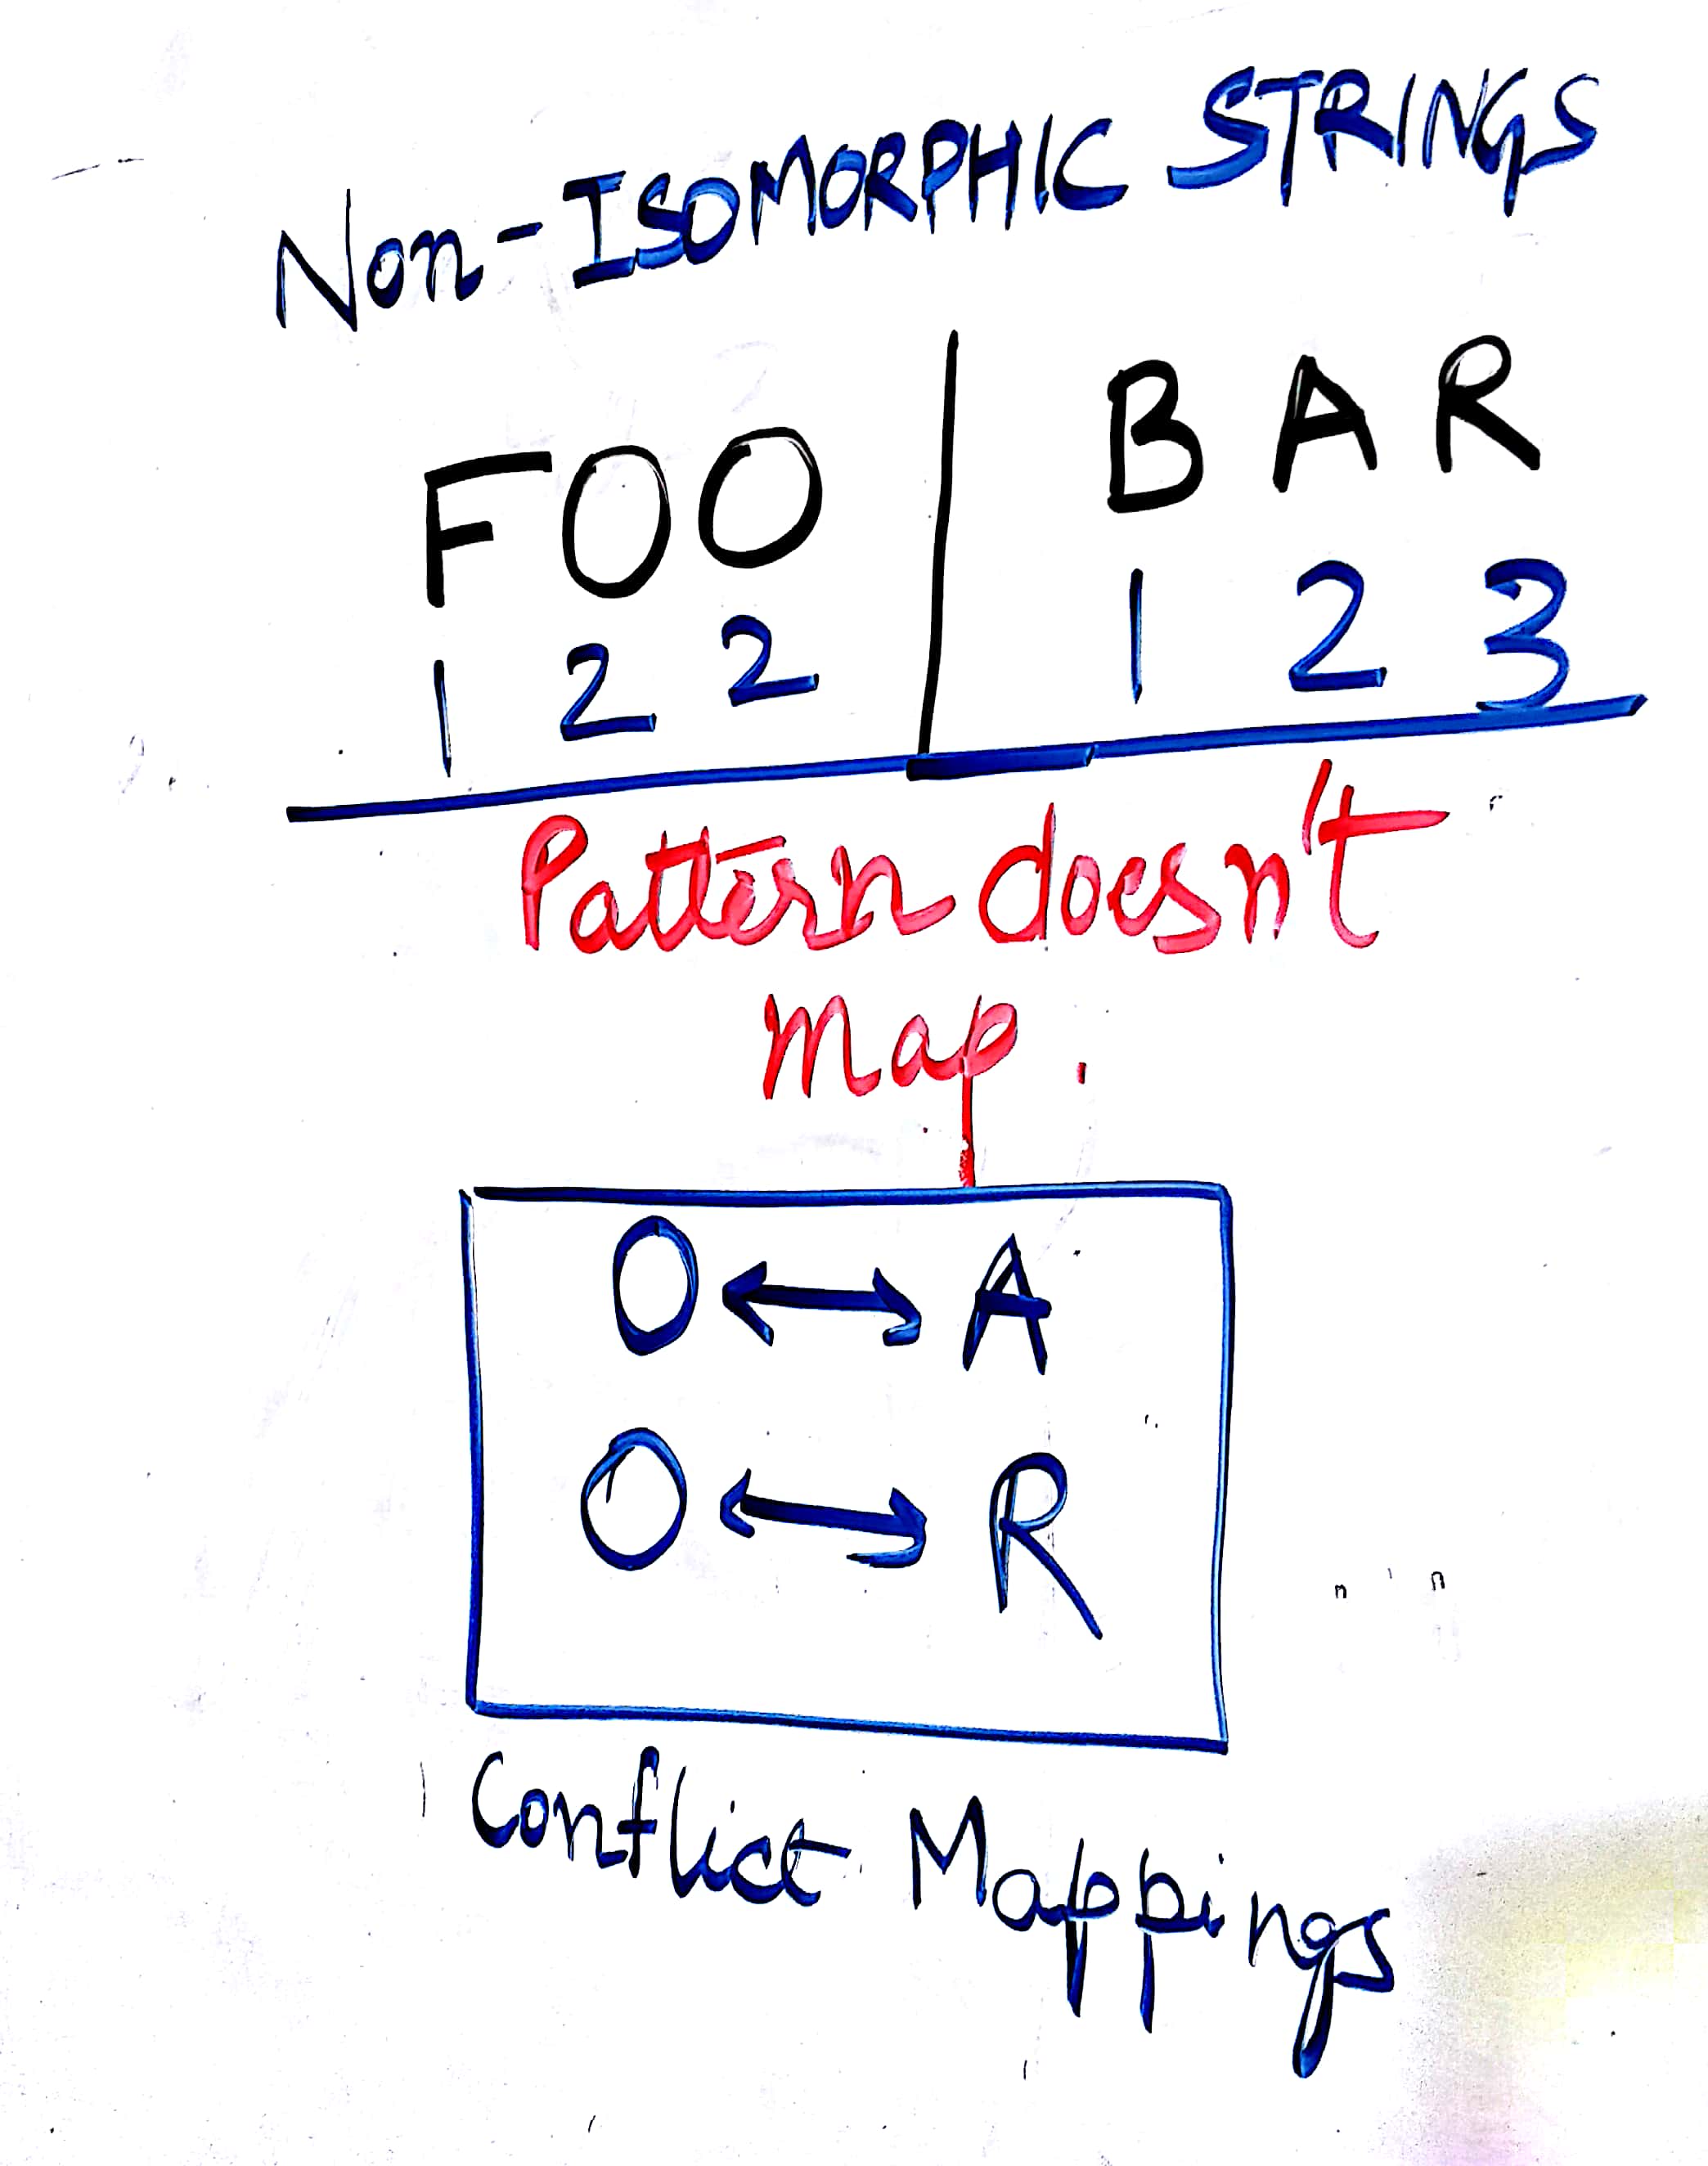 Non-ISOMORPHIC STRINGS
FOO | BAR
1 2 2 | 1 2 3
Pattern doesn't
Map.
O ↔ A
O ↔ R
Conflict Mappings